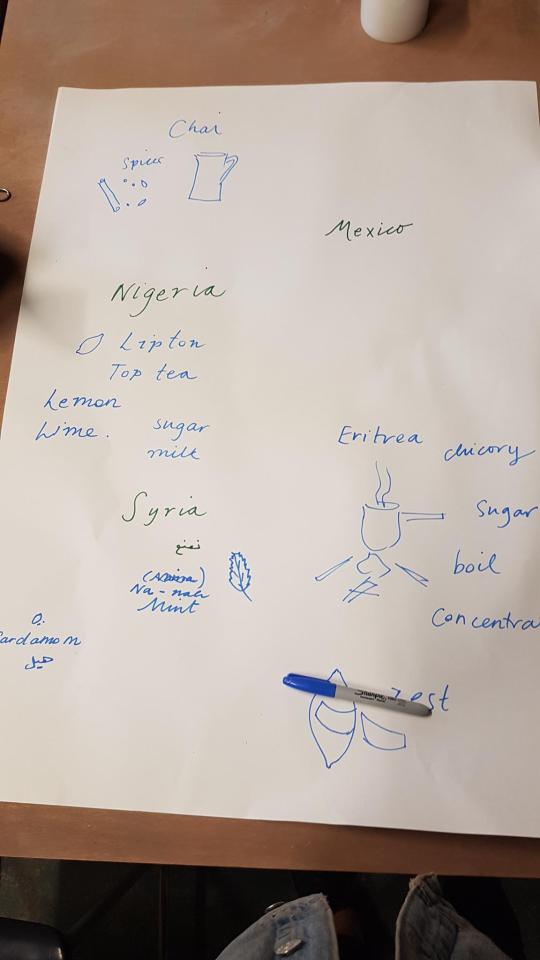 Chai
spices
Mexico
Nigeria
Lipton
Top tea
Lemon
Lime.
sugar
milk
Eritrea
chicory
Sugar
boil
Concentra
Syria
نعنع
Na-nah
Mint
ardamom
هيل
Sharpie
zest